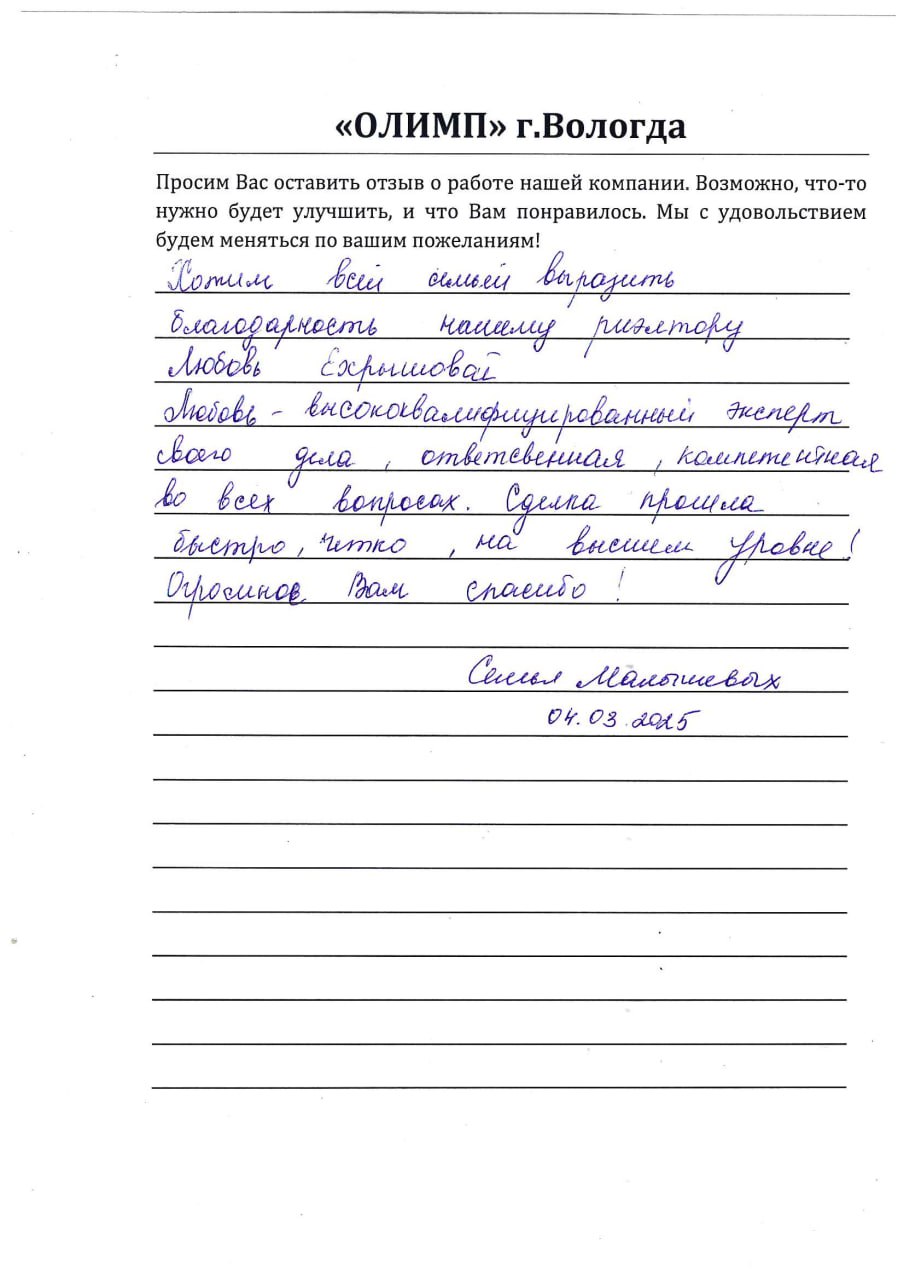 «ОЛИМП» г.Вологда
Просим Вас оставить отзыв о работе нашей компании. Возможно, что-то
нужно будет улучшить, и что Вам понравилось. Мы с удовольствием
будем меняться по вашим пожеланиям!
Хотим всей семьёй выразить
благодарность нашему риэлтору
Любовь Ехрышовай
Любовь - высококвалифицированный эксперт
своего дела , ответсвенная , компетентная
во всех вопросах. Сделка прошла
быстро, четко , на высшем уровне!
Огромное Вам спасибо !
Семья Малышевых
04.03.2025